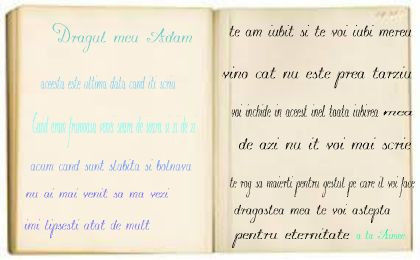 Dragul meu Adam
aceasta este ultima data cand iti scriu
Cand eram frumoasa venei seara de seara si zi de zi
acum cand sunt slabita si bolnava
nu ai mai venit sa ma vezi
imi lipsesti atat de mult
te am iubit si te voi iubi mereu
vino cat nu este prea tarziu
voi inchide in acest inel toata iubirea mea
de azi nu it voi mai scrie
te rog sa maierti pentru gestul pe care il voi face
dragostea mea te voi astepta
pentru eternitate a ta Aimee